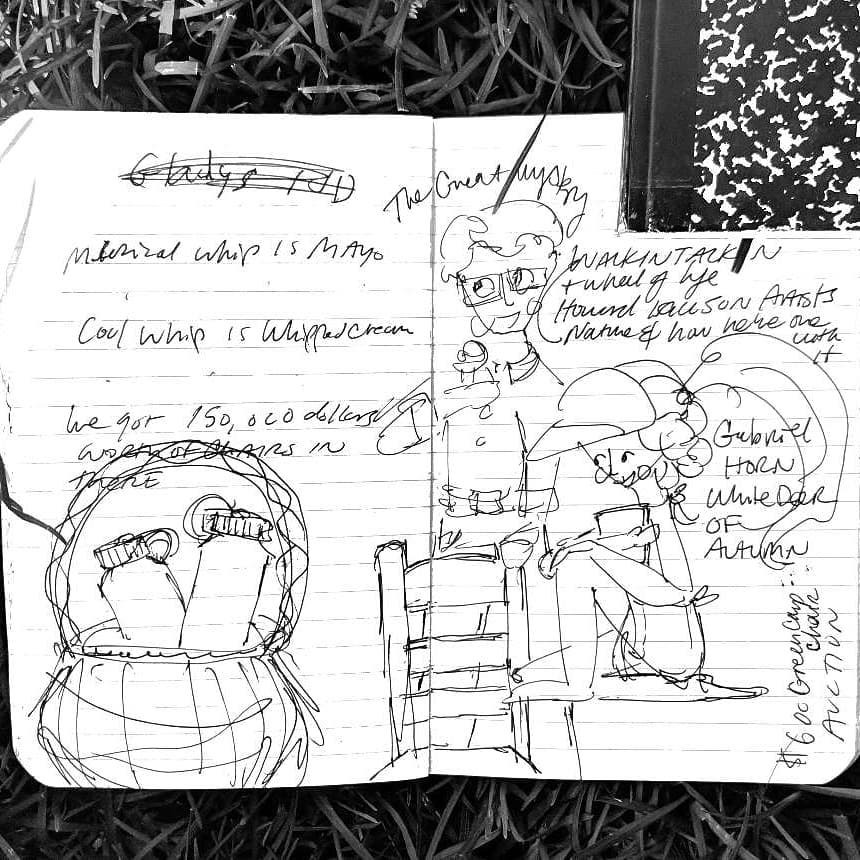 Gladys
Mexical whip is MAYO
Cool whip is whipped cream
I've got 150,000 dollars
WORTH OF CHAIRS IN
THERE
The Great
WALKIN TALKIN
+ wheel of life
Howard ARTISTS
Nature & how we're one
with
it
Gabriel
HORN
White Deer
OF
AUTUMN
$600 Green Camp
chair
AUCTION